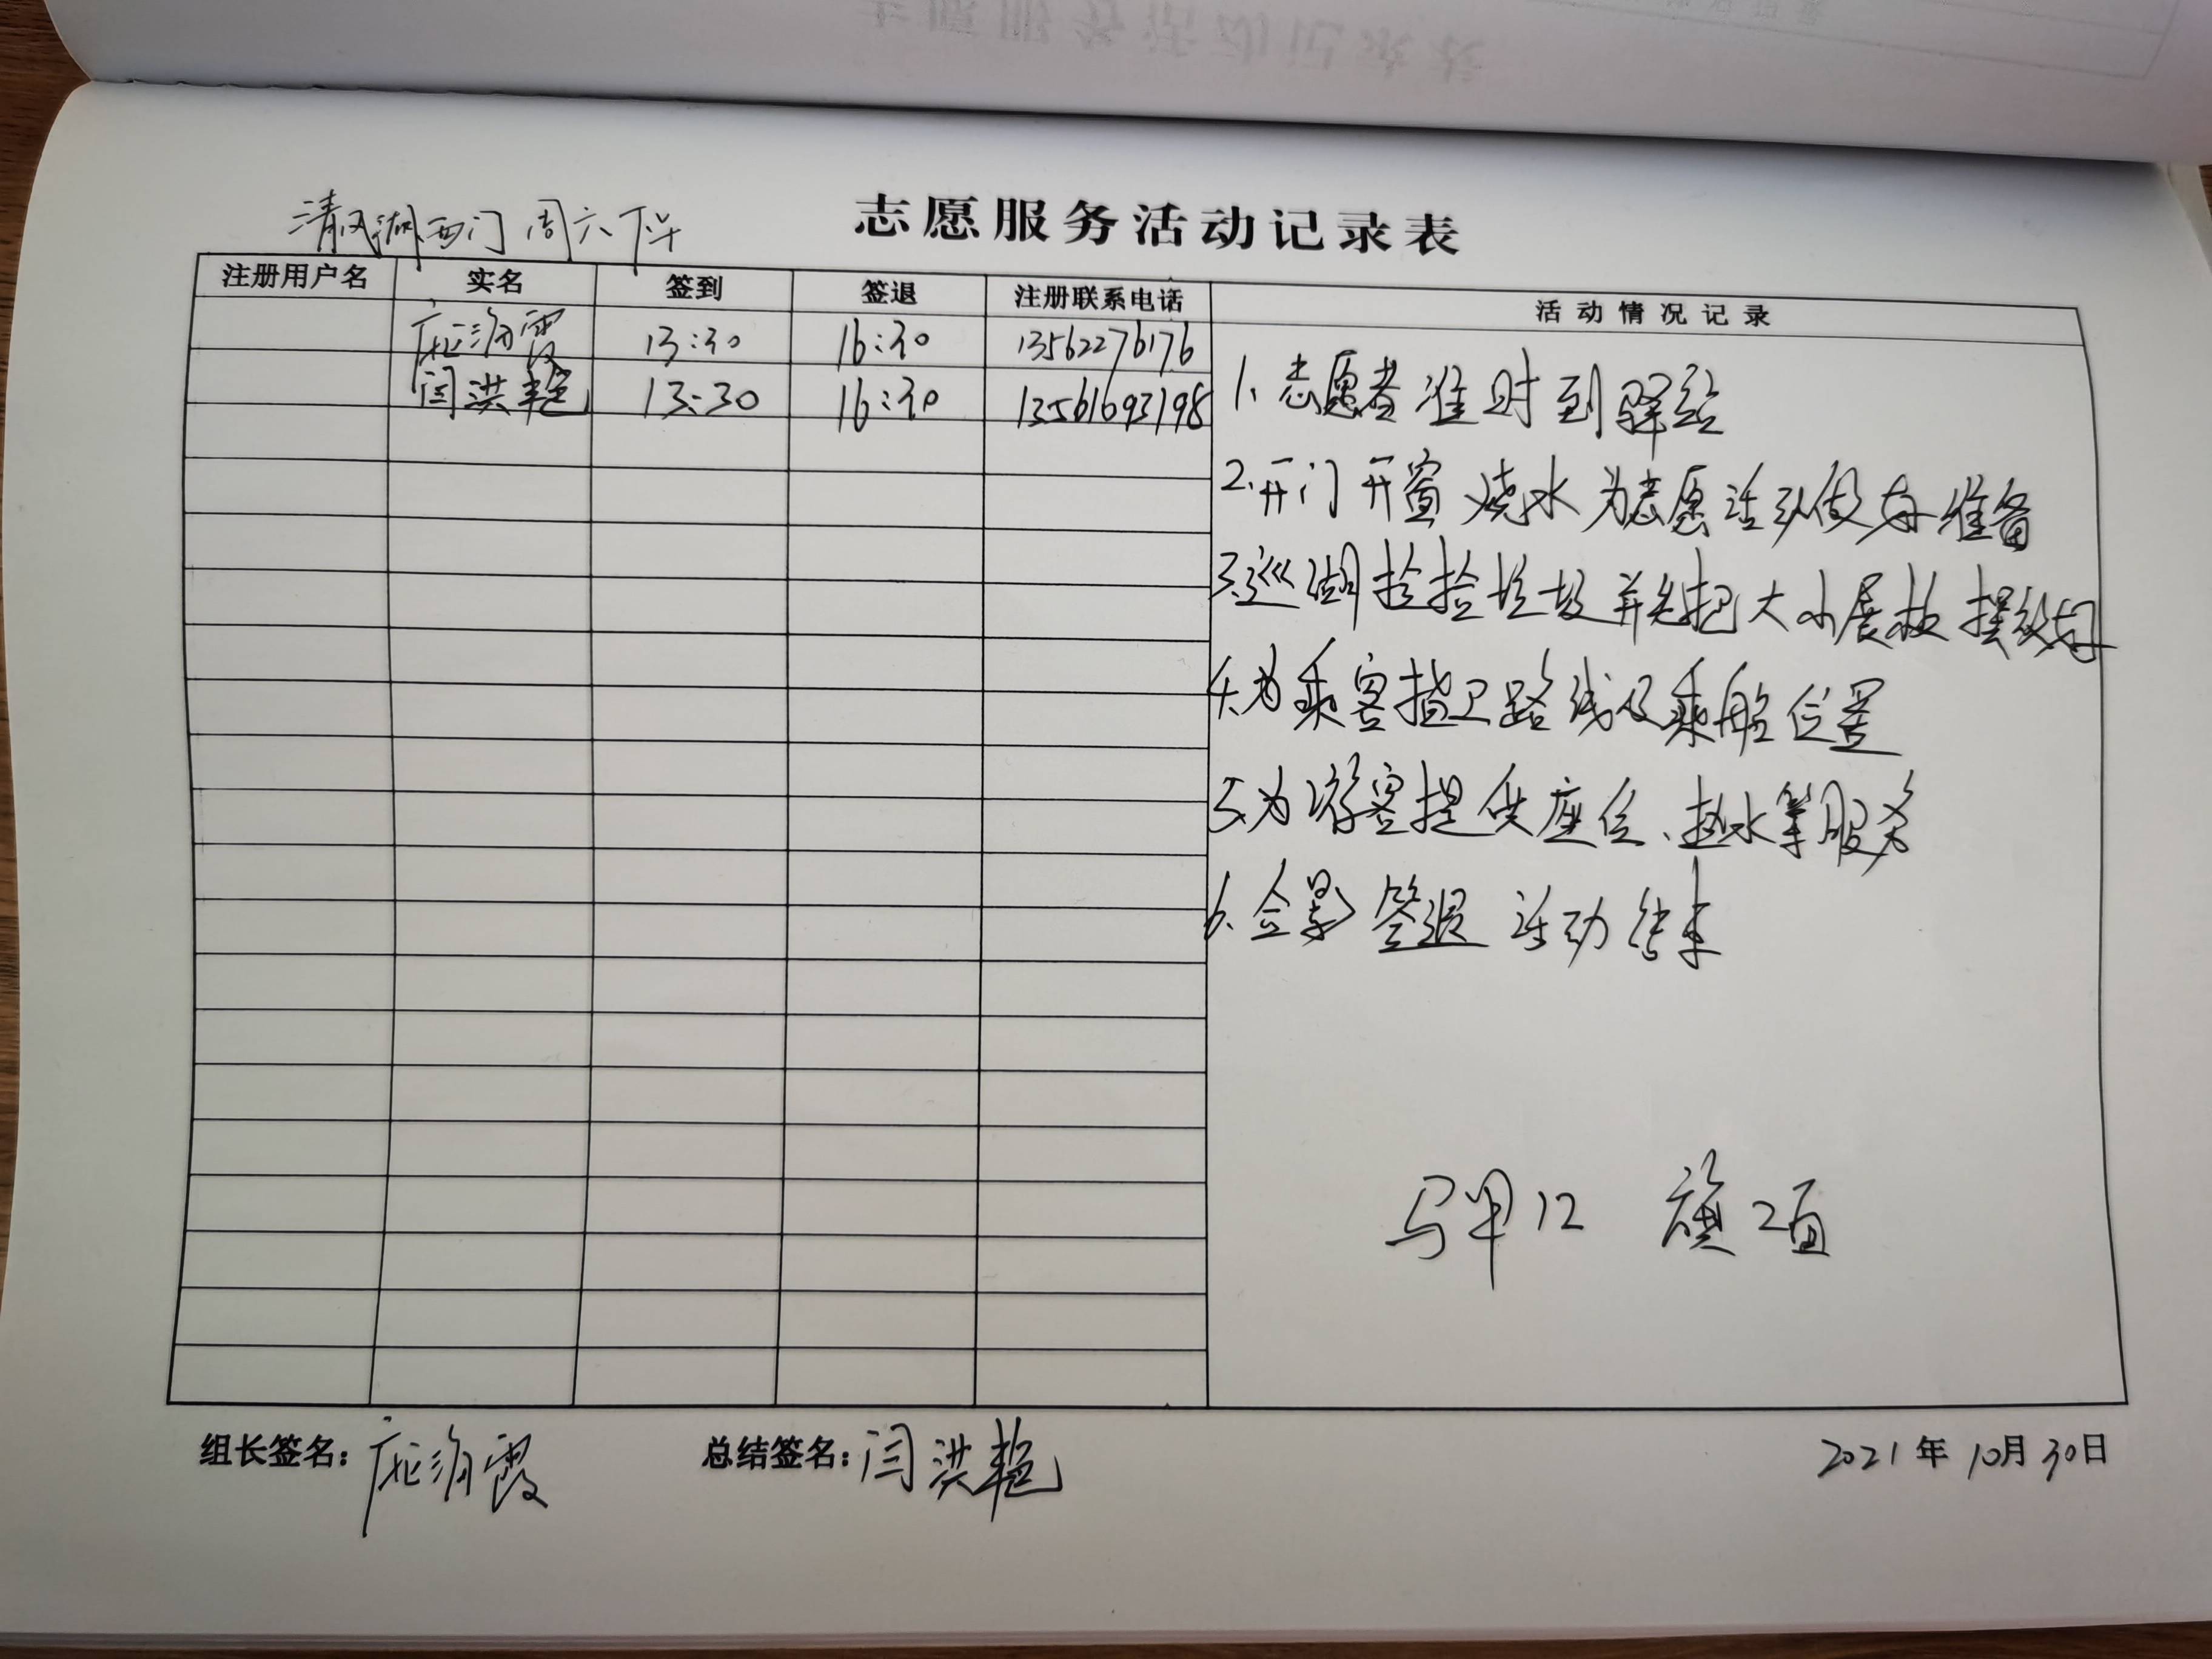 清风湖西门 周六下午
志愿服务活动记录表
注册用户名 实名 签到 签退 注册联系电话 活动情况记录
霞 13:30 16:30 13562276176
闫洪艳 13:30 16:30 13561693198
1、志愿者准时到驿站
2、开门开窗 烧水 为志愿活动做好准备
3、巡湖捡捡垃圾并先把大小展板摆放好
4、为乘客指卫路线及乘船位置
5、为游客提供座位、热水等服务
6、合影 签退 活动结束
马甲12 旗2面
组长签名： 霞 总结签名：闫洪艳 2021年10月30日